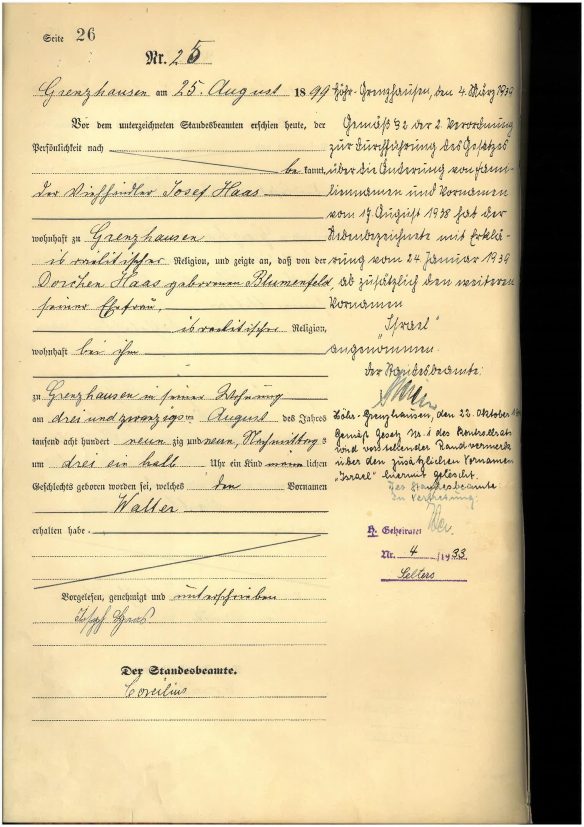 Seite 26
Nr. 25
Grenzhausen am 25. August 1899
Vor dem unterzeichneten Standesbeamten erschien heute, der
Persönlichkeit nach
be kannt,
der Viehhändler Josef Haas
wohnhaft zu Grenzhausen
israelitischer Religion, und zeigte an, daß von der
Dorchen Haas geborenen Blumenfeld,
seiner Ehefrau,
israelitischer Religion,
wohnhaft bei ihm
zu Grenzhausen in seiner Wohnung
am drei und zwanzigsten August des Jahres
tausend acht hundert neun zig und neun, Nachmittags
um drei ein halb Uhr ein Kind männ lichen
Geschlechts geboren worden sei, welches den Vornamen
Walter
erhalten habe.
Vorgelesen, genehmigt und unterschrieben
Joseph Haas
Der Standesbeamte.
Corcilius
Höhr-Grenzhausen, den 4. März 1939
Gemäß § 2 der 2. Verordnung
zur Durchführung des Gesetzes
über die Änderung von Fami-
liennamen und Vornamen
vom 17. August 1938 hat der
Nebenbezeichnete mit Erklä-
rung vom 24. Januar 1939
ab zusätzlich den weiteren
Vornamen
„Israel"
angenommen.
der Standesbeamte:
Höhr-Grenzhausen, den 22. Oktober
Gemäß Gesetz Nr. 1 des Kontrollrats
wird vorstehender Randvermerk
über den zusätzlichen Vornamen
„Israel" hiermit gelöscht.
Der Standesbeamte
In Vertretung:
H. Geheiratet
Nr. 4 /1933
Selters